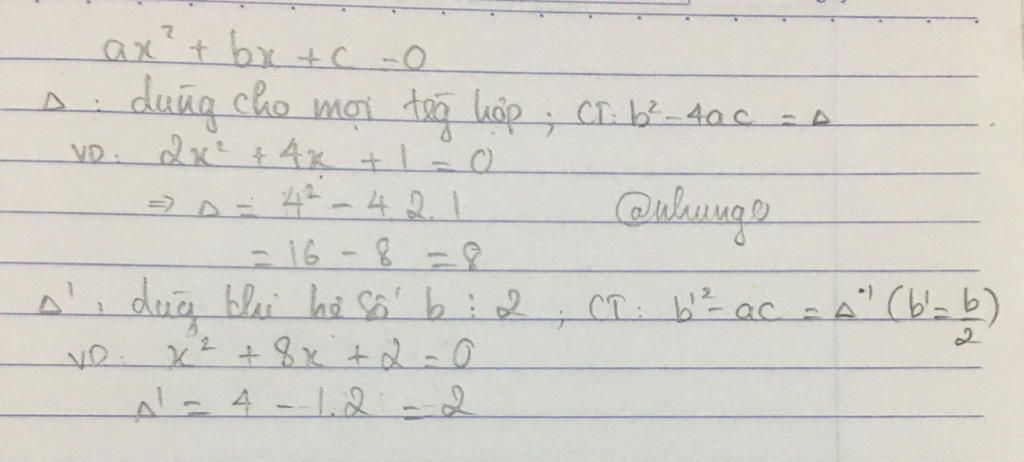 ax² + bx + c = 0
Δ : dùng cho mọi trg hợp ; CT: b² - 4ac = Δ
VD: 2x² + 4x + 1 = 0
⇒ Δ = 4² - 4.2.1 @nhungo
= 16 - 8 = 8
Δ' : dùng khi hệ số b ⋮ 2 ; CT: b'² - ac = Δ' (b' = b/2)
VD: x² + 8x + 2 = 0
Δ' = 4 - 1.2 = 2